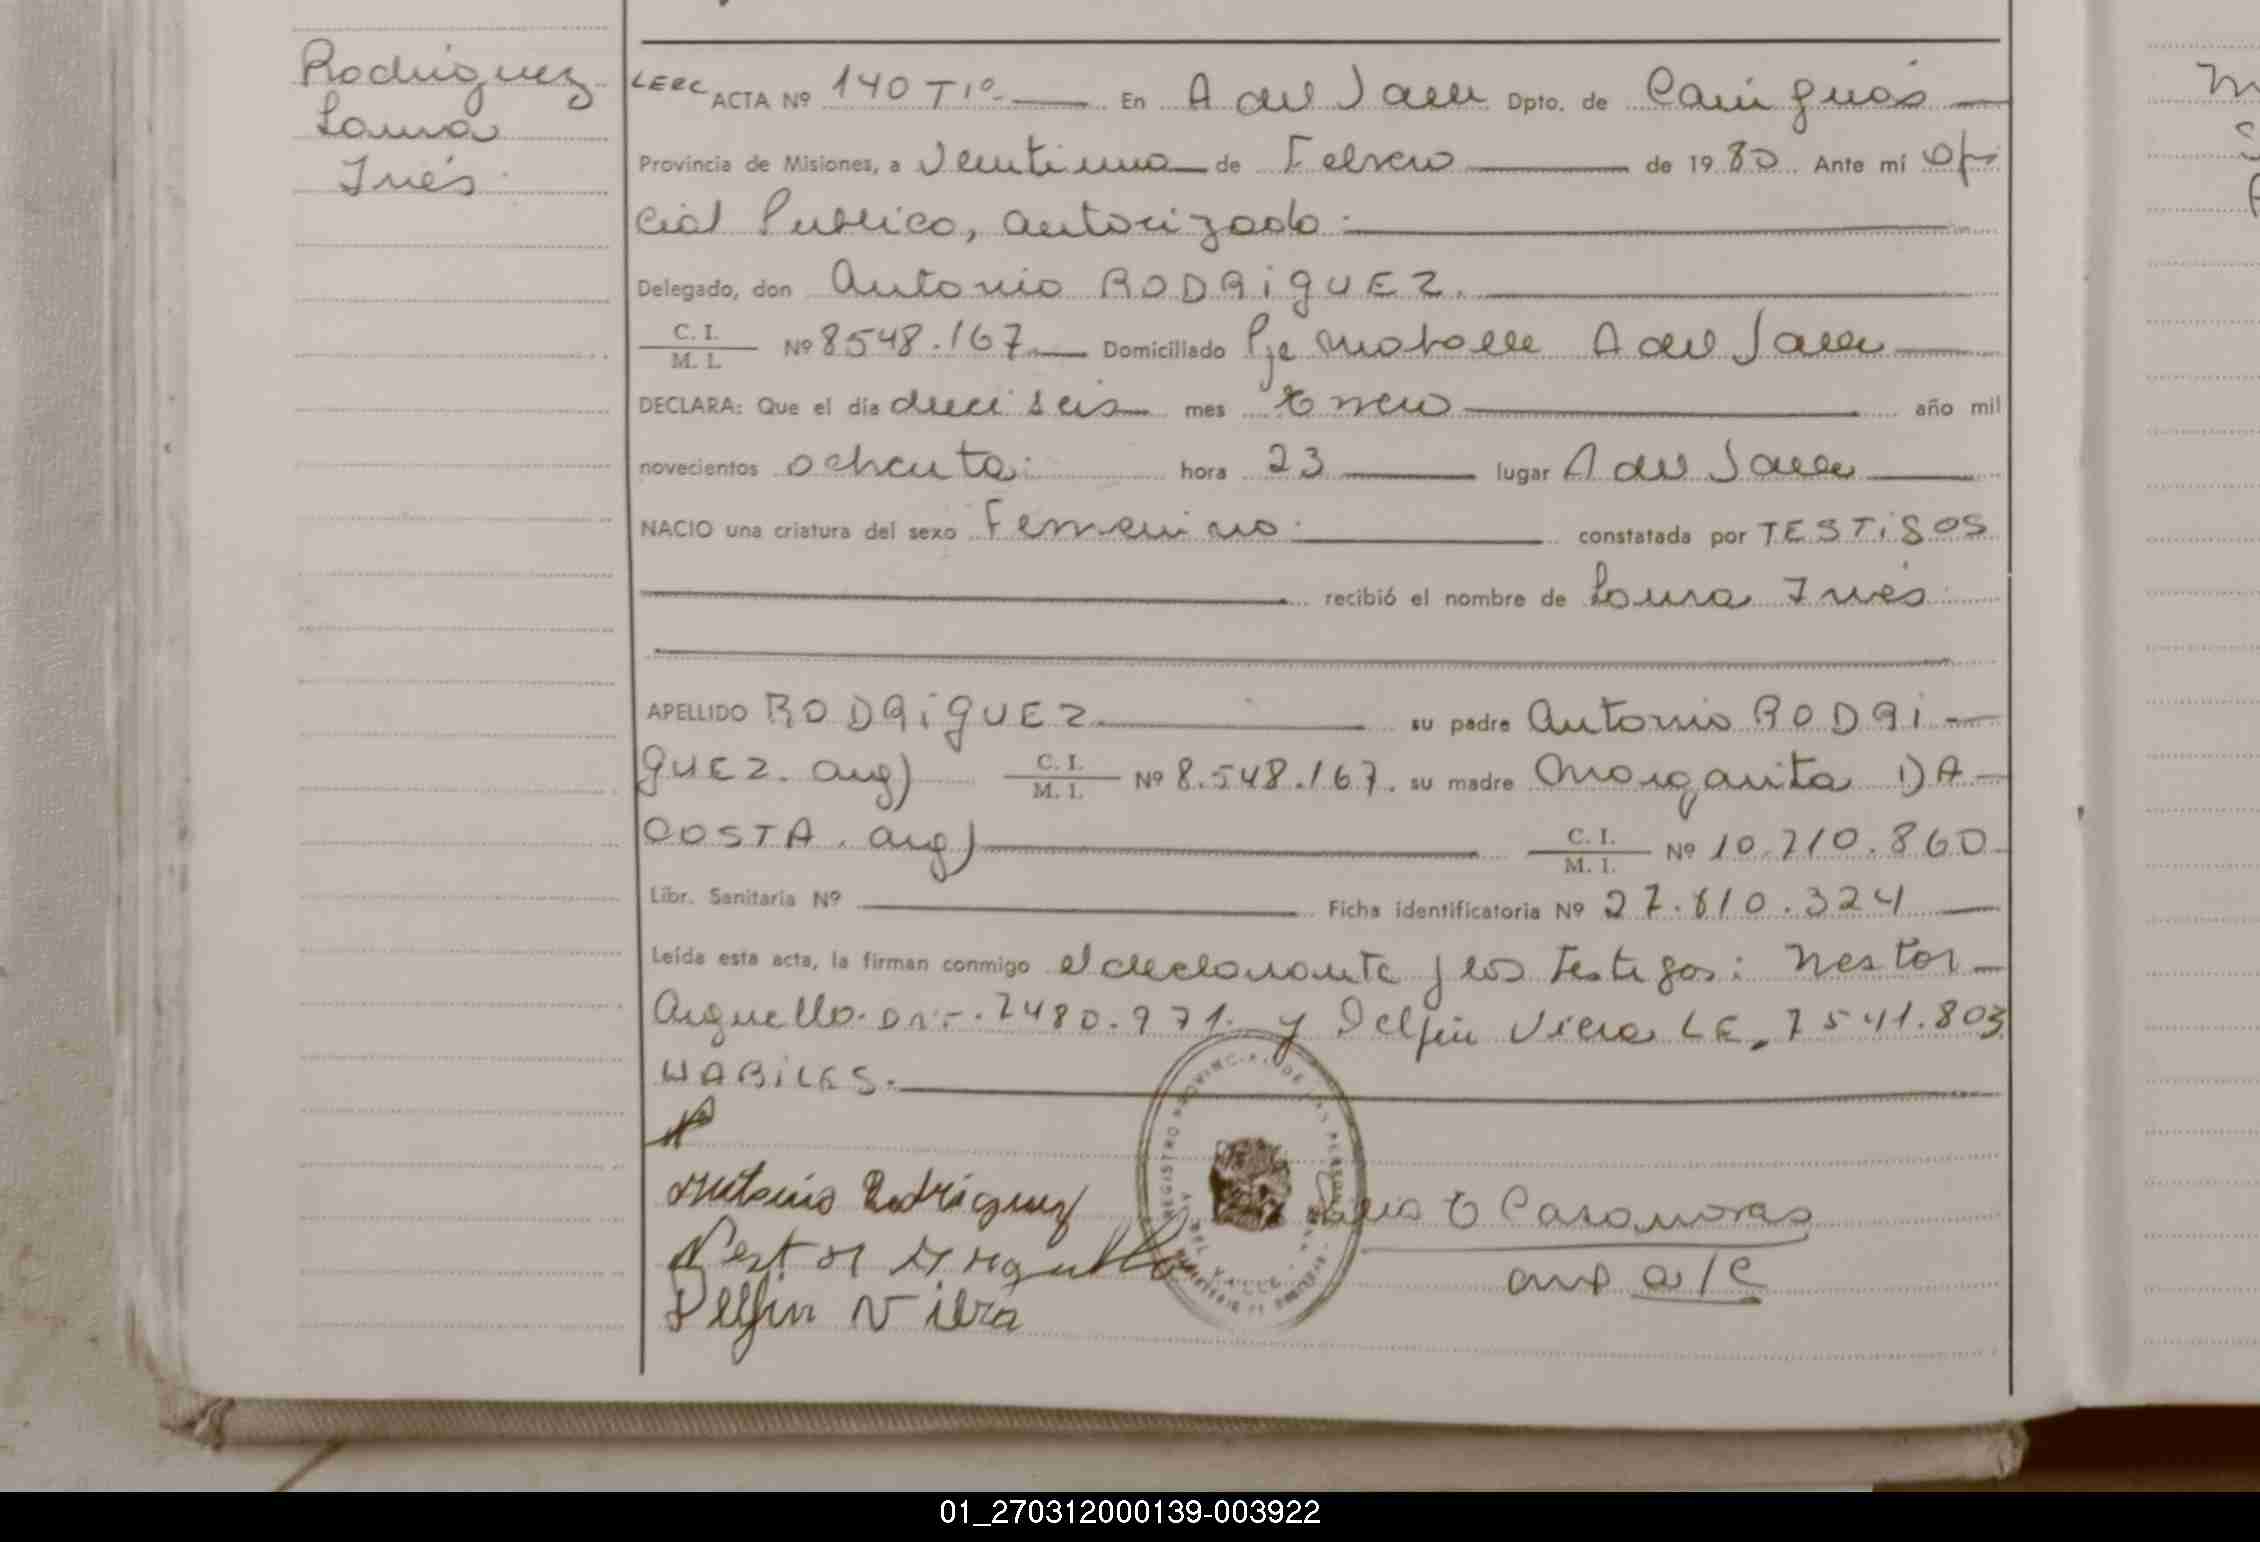 Rodriguez
Laura
Inés
LERC ACTA Nº 140 Tº En A del Valle Dpto. de Cainguás
Provincia de Misiones, a Veintiuno de Febrero de 1980. Ante mí ofi
cial Publico, autorizado:
Delegado, don Antonio RODRIGUEZ.
C. I.
M. I. Nº 8548.167 Domiciliado Pje A del Valle
DECLARA: Que el día dieci seis mes Enero año mil
novecientos ochenta hora 23 lugar A del Valle
NACIO una criatura del sexo Femenino constatada por TESTIGOS
recibió el nombre de Laura Inés
APELLIDO RODRIGUEZ su padre Antonio RODRI
GUEZ. arg) C. I.
M. I. Nº 8.548.167. su madre Margarita DA
COSTA. arg) C. I.
M. I. Nº 10.210.860
Libr. Sanitaria Nº Ficha identificatoria Nº 27.810.324
Leída esta acta, la firman conmigo el declarante y los testigos: Nestor
Arguello. DNI. 7480.971. y Delfin Viera LE. 7541.803
HABILES.
Antonio Rodriguez
Nestor Arguello
Delfin Viera
E Casanovas
a/c
REGISTRO PROVINCIAL DE LAS PERSONAS
DEL VALLE
01_270312000139-003922